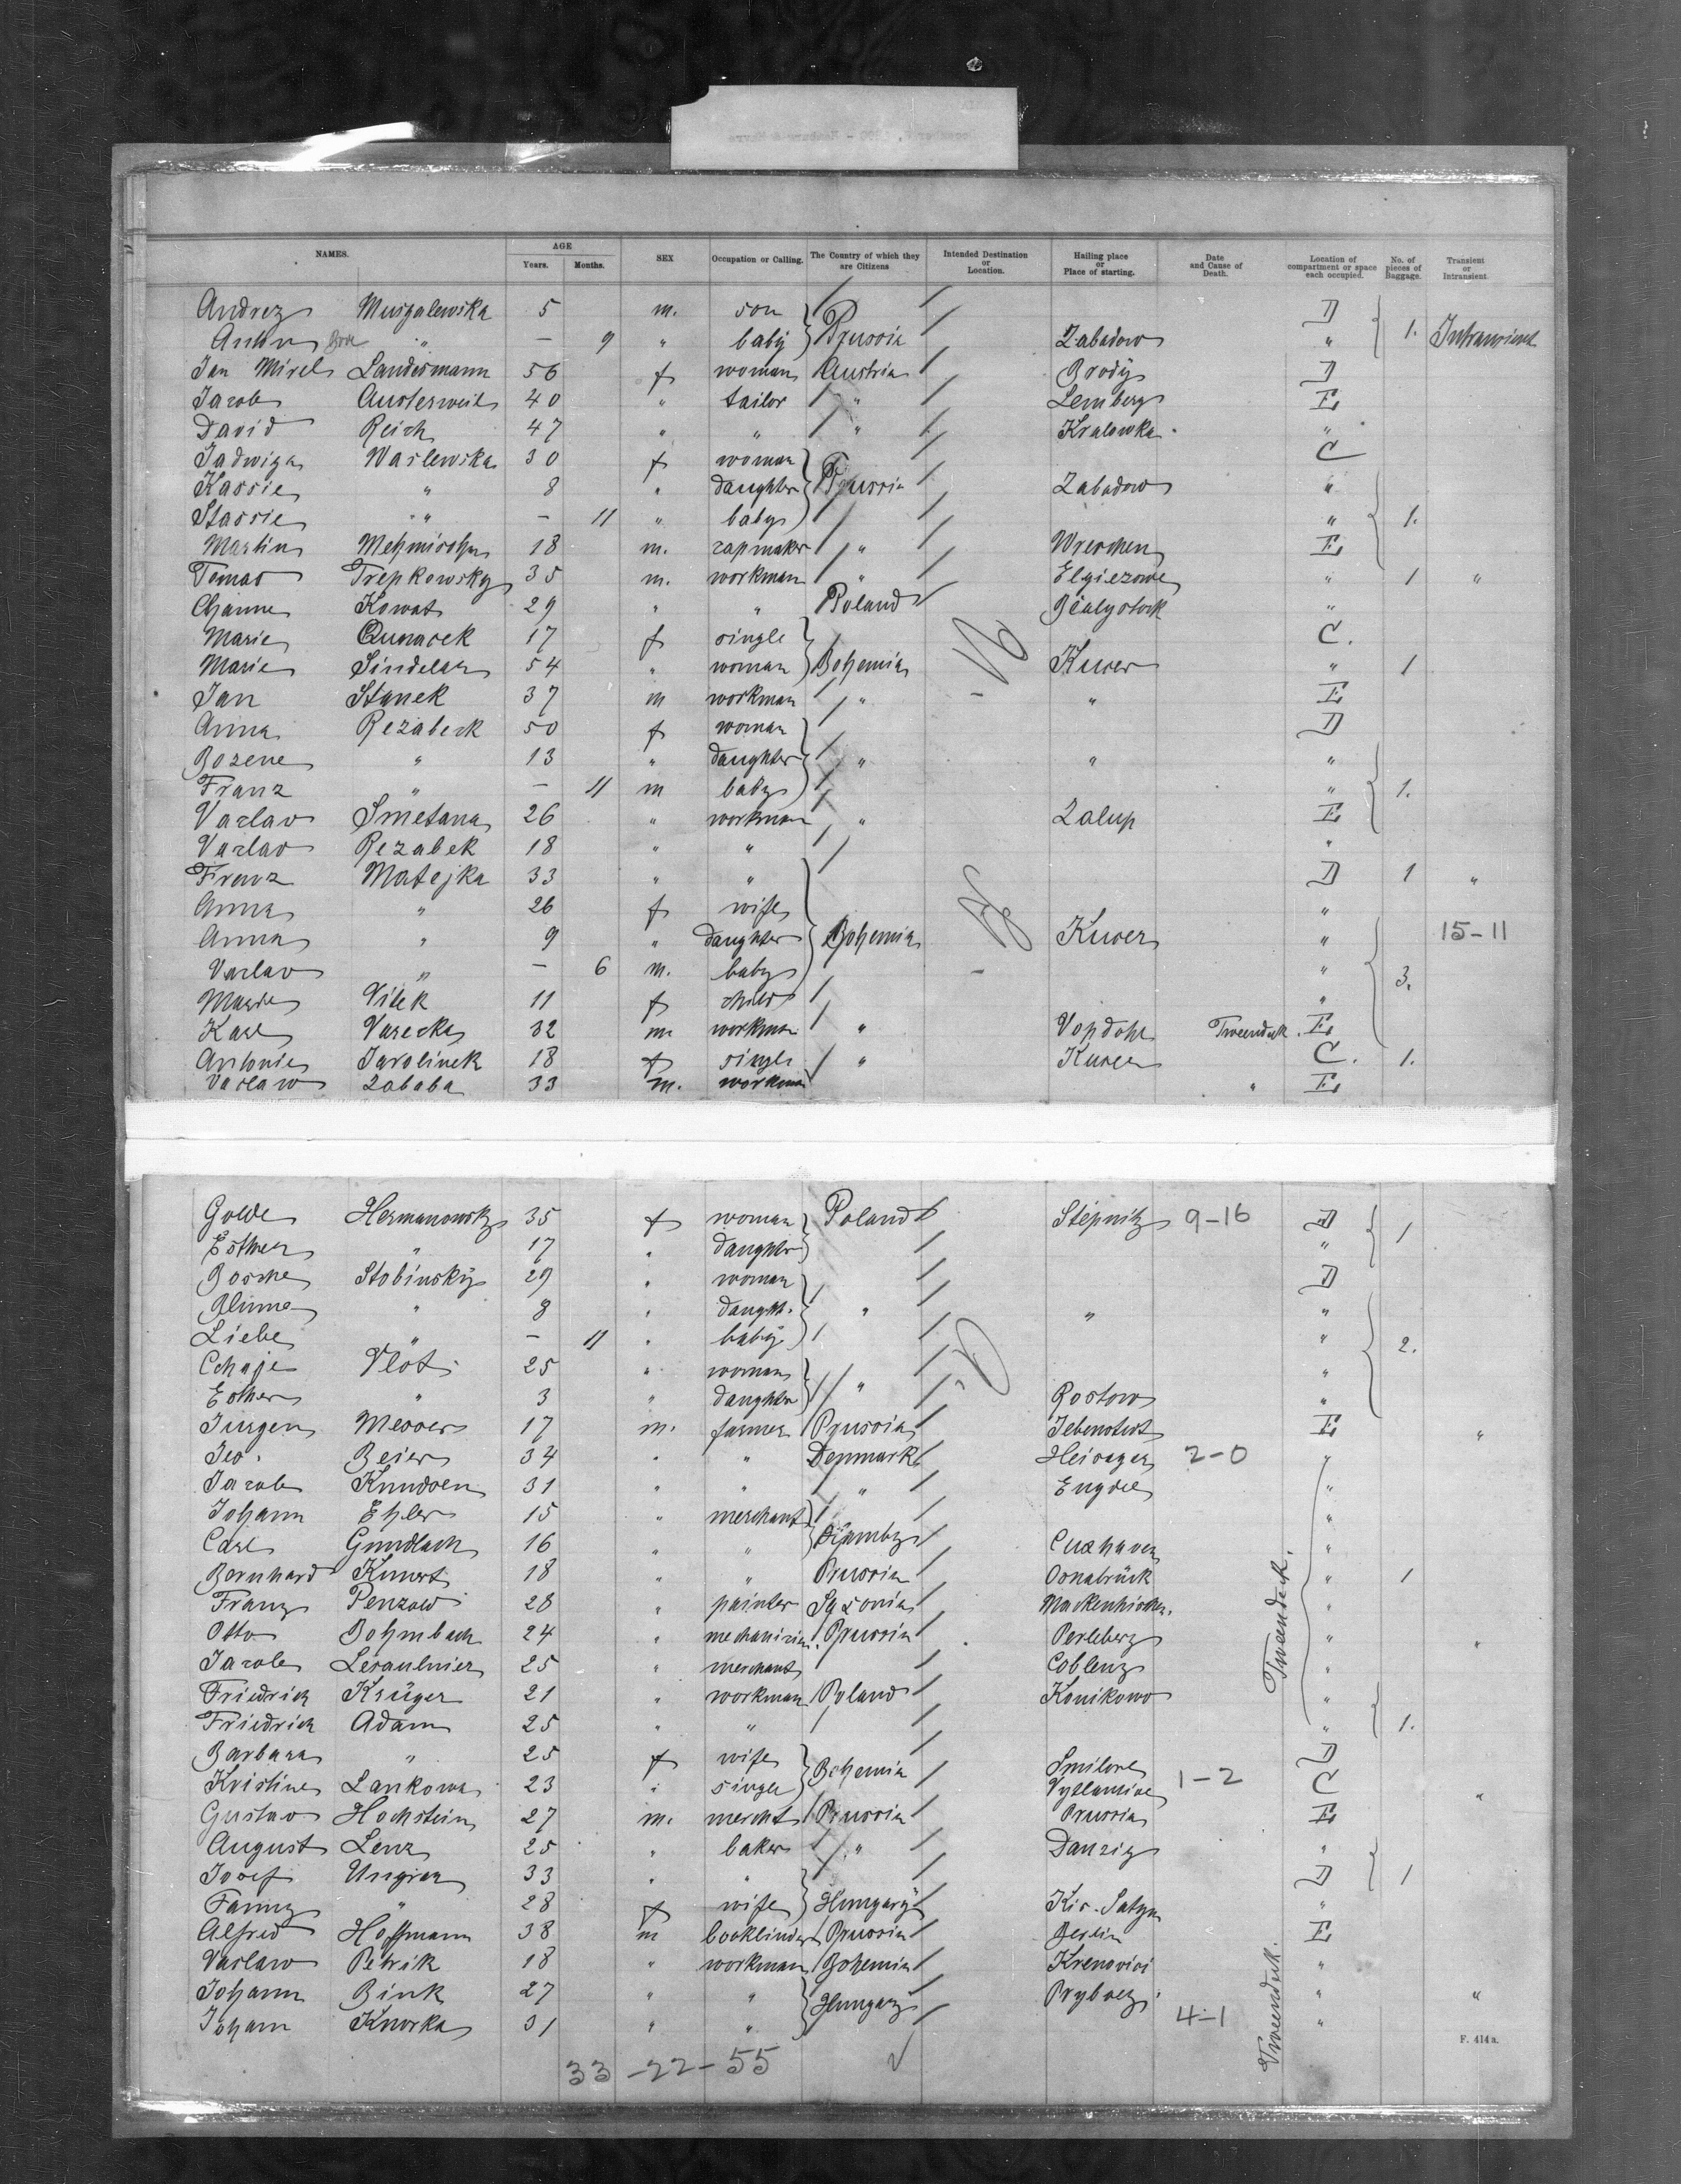 NAMES. AGE Years. Months. SEX Occupation or Calling. The Country of which they are Citizens Intended Destination or Location. Hailing place or Place of starting. Date and Cause of Death. Location of compartment or space each occupied. No. of pieces of Baggage. Transient or Intransient.
Andrez 5 m. son D
Anton " — 9 " baby Prussia Zabadow " 1. Intransient
Jan Mirel Landesmann 56 f woman Austria Brody D
Jacob Austerweil 40 " tailor " Lemberg E
David Reich 47 " " " Kralowka "
Jadwiga Waslewska 30 f woman C
Kassie " 8 " daughter Prussia Zabadow "
Stassie " — 11 " baby " 1.
Martin 18 m. capmaker " Wreschen E
Tomas Trepkowsky 35 m. workman " " 1 "
Channe Kowat 29 " " Poland Bialystock "
Marie 17 f single C.
Marie Sindelar 54 " woman Bohemia Kuver " 1
Jan Stanek 37 m workman " " E
Anna Rezabeck 50 f woman D
Bozene " 13 " daughter " " "
Franz " — 11 m baby " 1.
Vaclav Smetana 26 " workman " Zalup E
Vaclav Rezabek 18 " " "
Franz Matejka 33 " " D 1 "
Anna " 26 f wife "
Anna " 9 " daughter Bohemia Kuver " 15-11
Vaclav " — 6 m. baby " 3.
Marie Vitek 11 f child "
Karl Varecka 32 m workman " Tweendeck E
Antonie Jarolinek 18 f single " Kuver C. 1.
Vaclaw Zababa 33 m. workman " E
Golde Hermanowsky 35 f woman Poland Stepnitz 9-16 D 1
Esther " 17 " daughter "
Bosche Stobinsky 29 " woman D
Blume " 8 " daught. " " "
Liebe " — 11 " baby " 2.
Chaje Vlot 25 " woman "
Esther " 3 " daughter " Rostow "
Jurgen Messer 17 m. farmer Prussia E "
Jes. Beier 34 " " Denmark 2-0 "
Jacob Knudsen 31 " " " "
Johann Ehler 15 " merchant "
Carl Gundlach 16 " " Hambg Cuxhaven "
Bernhard Kunert 18 " " Prussia Osnabrück " 1
Franz Penzow 28 " painter Saxonia "
Otto Bohmbach 24 " mechanician Prussia Perleberg Tweendeck. " "
Jacob Lesaulnier 25 " merchant Coblenz "
Friedrich Krüger 21 " workman Poland Konikowo "
Friedrich Adam 25 " " " 1.
Barbara " 25 f wife Bohemia Smilove D
Kristine Lankowa 23 " single 1-2 C
Gustav Hochstein 27 m. mercht Prussia Prussia E "
August Lenz 25 " baker " Danzig "
Josef Ungier 33 " " D 1
Fanny " 28 f wife Hungary "
Alfred Hoffmann 38 m bookbinder Prussia Berlin E
Vaclaw Petrik 18 " workman Bohemia Krenovici Tweendeck. "
Johann Bink 27 " " Hungary " "
Johann Knorka 31 " " 4-1 "
F. 414 a.
33 -22- 55